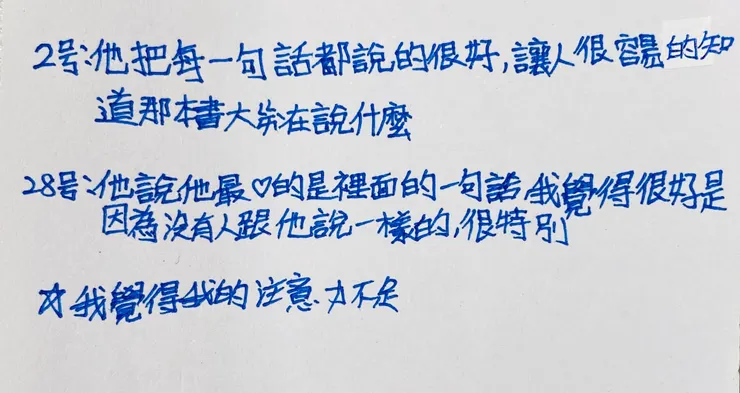 2号:他把每一句話都說的很好,讓人很容易的知
道那本書大約在說什麼
28号:他說他最♡的是裡面的一句話,我覺得很好是
因為沒有人跟他說一樣的,很特別
☆我覺得我的注意力不足